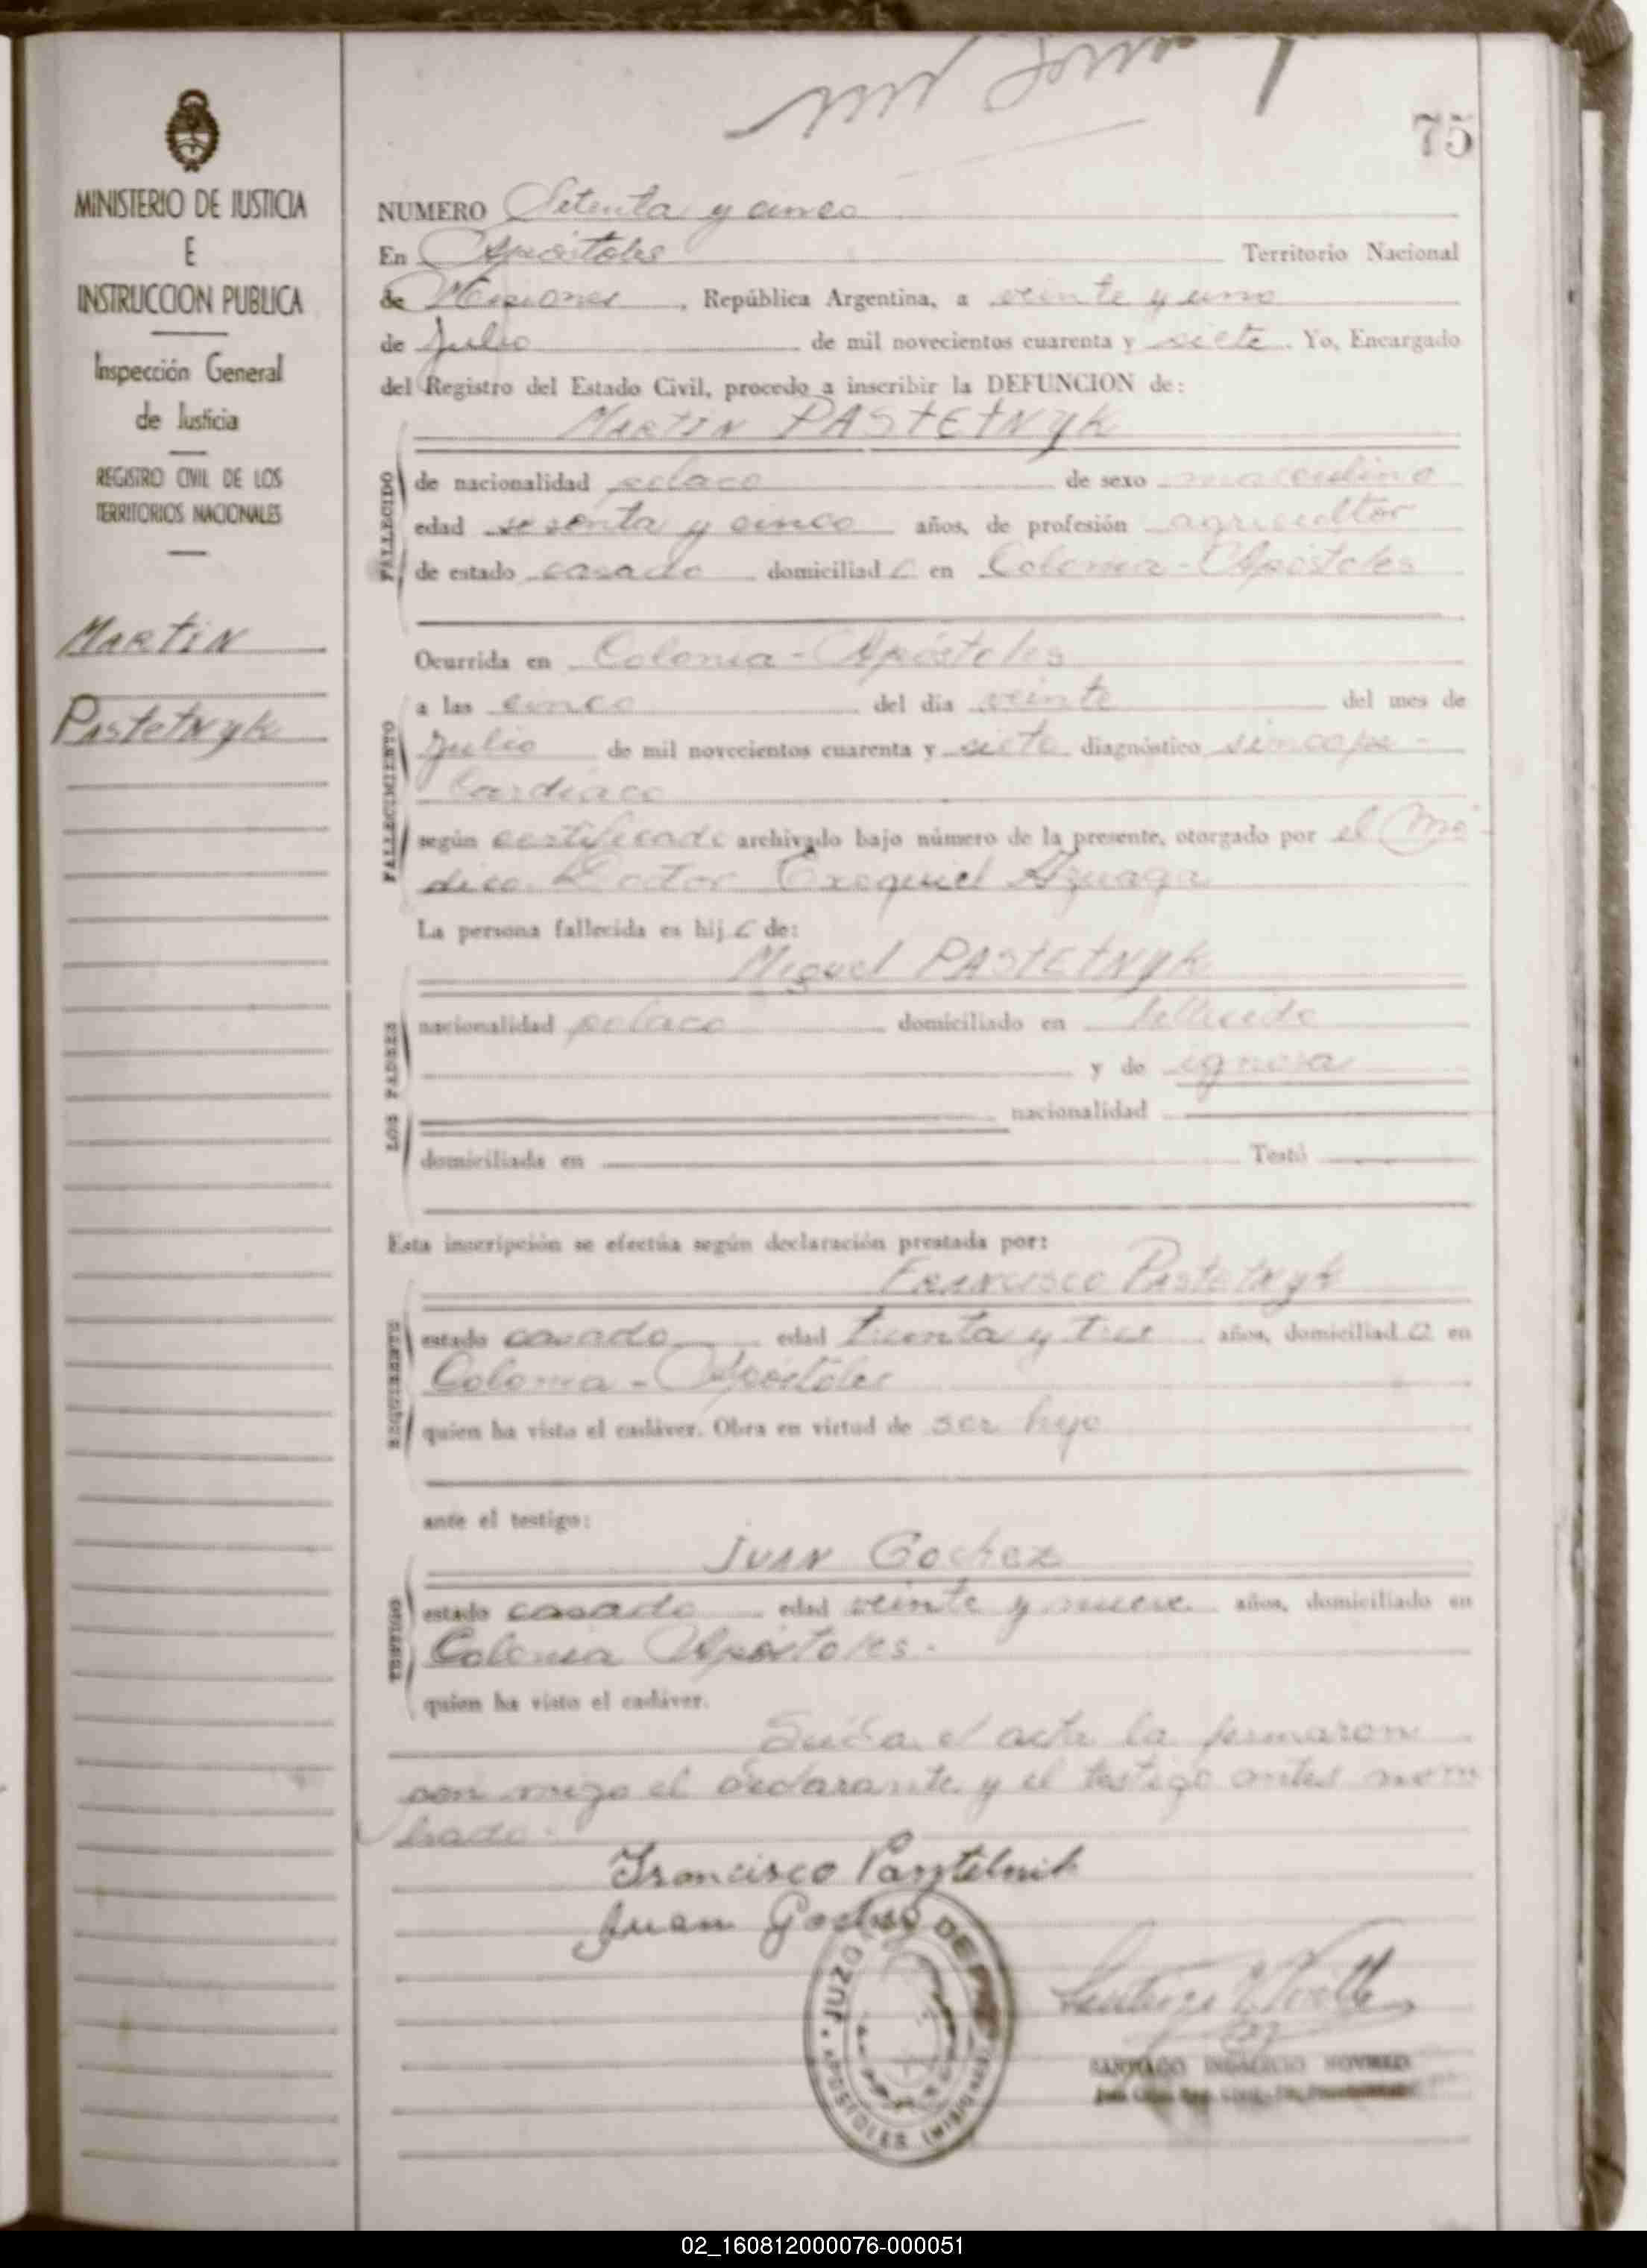 75
MINISTERIO DE JUSTICIA
E
INSTRUCCION PUBLICA
Inspección General
de Justicia
REGISTRO CIVIL DE LOS
TERRITORIOS NACIONALES
Martin
Pastetnyk
NUMERO Setenta y cinco
En Apóstoles Territorio Nacional
de Misiones, República Argentina, a veinte y uno
de Julio de mil novecientos cuarenta y siete. Yo, Encargado
del Registro del Estado Civil, procedo a inscribir la DEFUNCION de:
Martin PASTETNYK
FALLECIDO
de nacionalidad polaco de sexo masculino
edad sesenta y cinco años, de profesión agricultor
de estado casado domiciliado en Colonia - Apóstoles
FALLECIMIENTO
Ocurrida en Colonia - Apóstoles
a las cinco del día veinte del mes de
Julio de mil novecientos cuarenta y siete diagnóstico sincope -
Cardiaco
según certificado archivado bajo número de la presente, otorgado por el Mé-
dico Doctor Exequiel Azuaga
La persona fallecida es hijo de:
LOS PADRES
Miguel PASTETNYK
nacionalidad polaco domiciliado en fallecido
y de ignora
nacionalidad
domiciliada en Testó
Esta inscripción se efectúa según declaración prestada por:
REQUIRENTE
Francisco Pastetnyk
estado casado edad treinta y tres años, domiciliado en
Colonia - Apóstoles
quien ha visto el cadáver. Obra en virtud de ser hijo
ante el testigo:
TESTIGO
Juan Gochez
estado casado edad veinte y nueve años, domiciliado en
Colonia Apóstoles.
quien ha visto el cadáver.
Leída el acta la firmaron
con migo el declarante y el testigo antes nom
brado.
Francisco Pastelnik
Juan
JUZGADO DE PAZ
APOSTOLES (MISIONES)
SANTIAGO
02_160812000076-000051